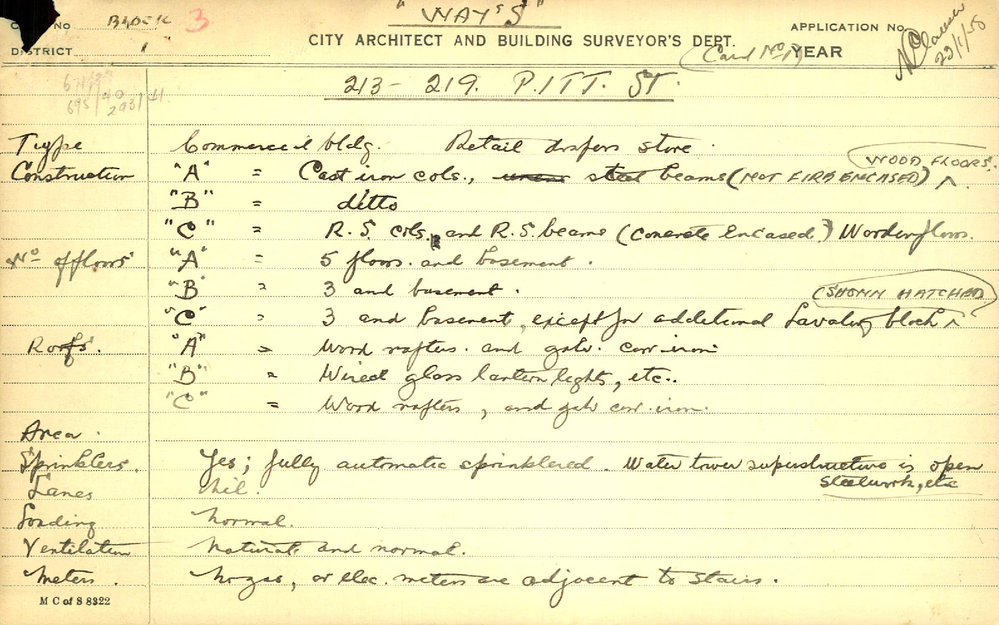 NO BLOCK 3 "WAY'S" APPLICATION NO
DISTRICT CITY ARCHITECT AND BUILDING SURVEYOR'S DEPT. (Card No 1) YEAR
23/1/58
213-219. PITT. ST.
695/40
293/41.
Type Commercial bldg. Retail drapers store.
WOOD FLOORS.
Construction "A" = Cast iron cols., steel beams (NOT FIRE ENCASED) ^
"B" = ditto
"C" = R.S. cols. and R.S. beams (Concrete Encased.) Wooden floors.
No of floors "A" = 5 floors. and basement.
"B" = 3 and basement. (SHOWN HATCHED)
"C" = 3 and basement, except for additional Lavatory block ^
Roofs. "A" = Wood rafters. and galv. corr. iron
"B" = Wired glass lantern lights, etc..
"C" = Wood rafters, and galv corr. iron.
Area.
Sprinklers. Yes; fully automatic sprinklered. Water tower superstructure is open
steelwork, etc
Lanes Nil.
Loading Normal.
Ventilation Natural and normal.
Meters. No gas, or elec. meters are adjacent to stairs.
M C of S 8322